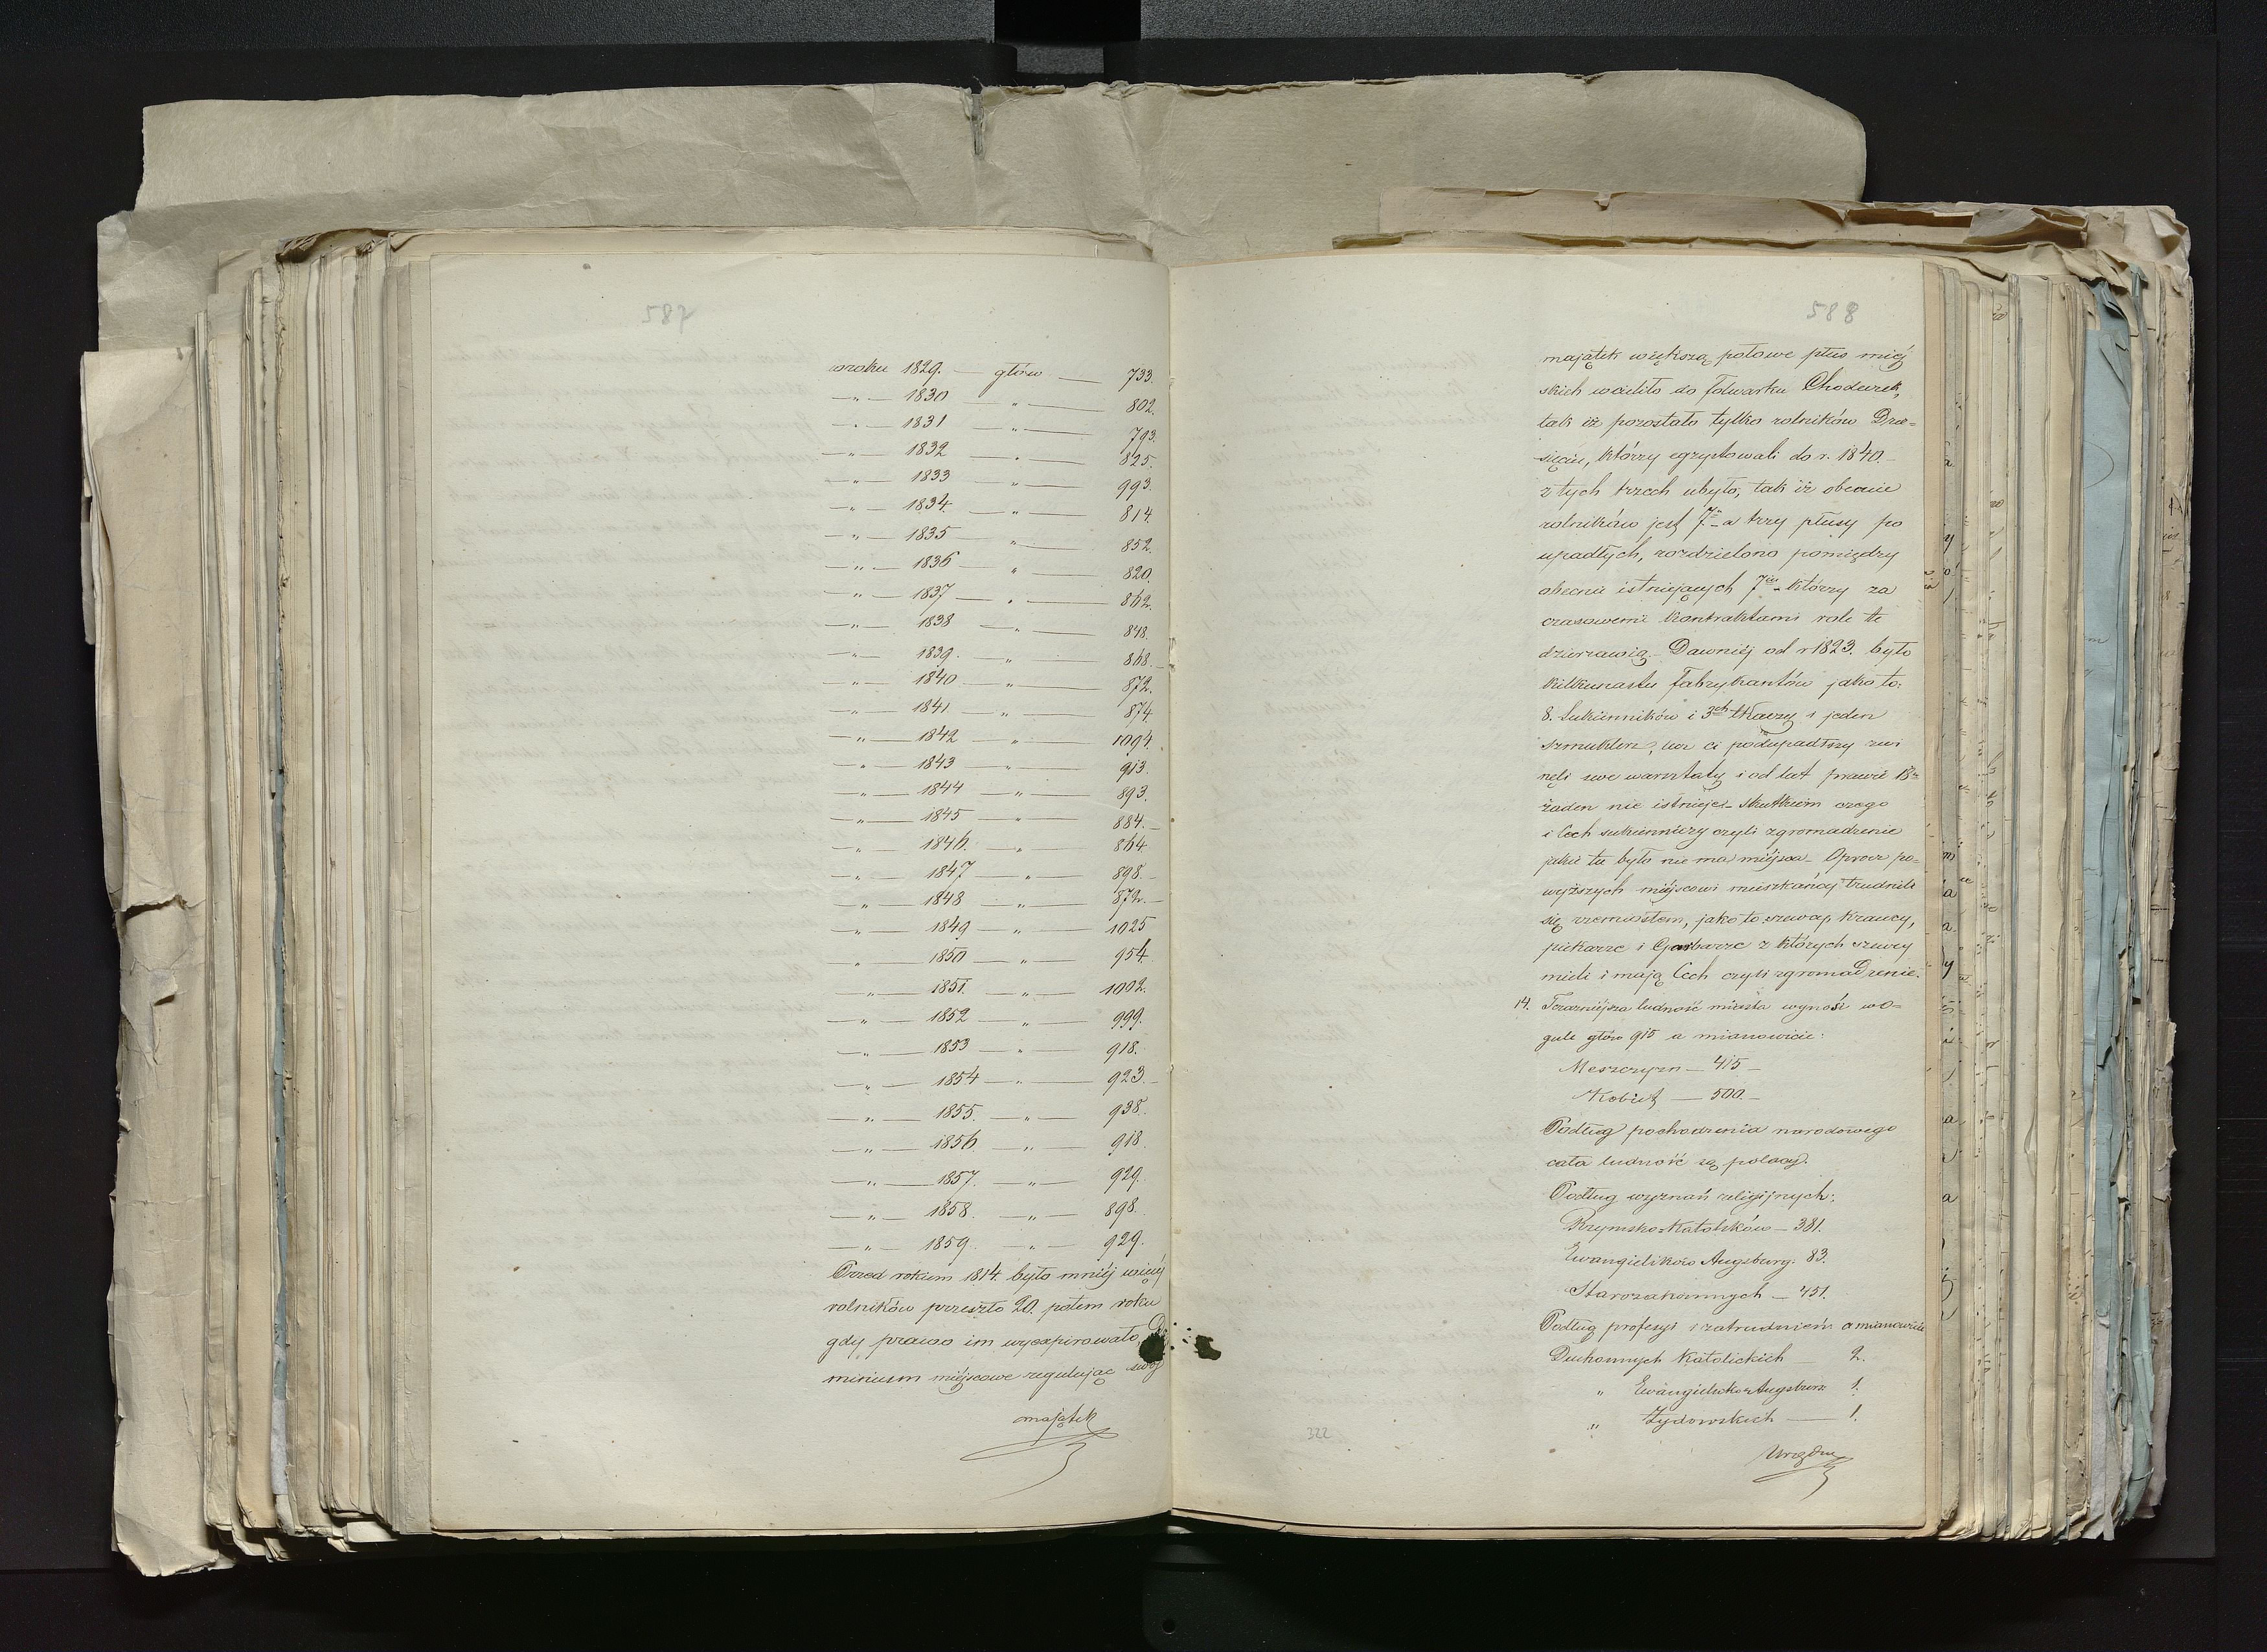 587
w roku 1829. — głów — 733.
— „ — 1830 „ — 802.
— „ — 1831 — „ — 793.
— „ — 1832 „ — 825.
— „ — 1833 „ — 993.
— „ — 1834. „ — 814.
— „ — 1835 „ — 852.
— „ — 1836 „ — 820.
— „ — 1837 — „ — 862.
— „ — 1838 „ — 848.
— „ — 1839. — „ — 868.
— „ — 1840 — „ — 872.
— „ — 1841. — „ — 874
— „ — 1842 — „ — 1094.
— „ — 1843 — „ — 913.
— „ — 1844 — „ — 893.
— „ — 1845 — „ — 884.
— „ — 1846. — „ — 864
— „ — 1847 — „ — 898
— „ — 1848 — „ — 872.
— „ — 1849 — „ — 1025
„ — 1850 — „ — 954.
— „ — 1851. — „ — 1002.
— „ — 1852 — „ — 999.
— „ — 1853 — „ — 918.
— „ — 1854 — „ — 923.
— „ — 1855. — „ — 938.
— „ — 1856. — „ — 918
— „ — 1857. — „ — 929.
— „ — 1858. — „ — 898.
— „ — 1859. — „ — 929.
Przed rokiem 1814. było mniéj więcéj
rolników przeszło 20. potem roku
gdy prawo im wyexpirowało Do
minium miéjscowe regulując swój
majątek
588
majątek większą połowe plus miéj
skich wcieliło do folwarku Chodurek,
tak iż pozostało tylko rolników Dzie=
sięciu, którzy egzystowali do r. 1840.
z tych trzech ubyło, tak iż obecnie
rolników jest 7iu a trzy plusy po
upadłych, rozdzielono pomiędzy
obecnie istniejących 7iu którzy za
czasowemi kontraktami role te
dzierzawią. Dawniéj od r 1823. było
kilkunastu fabrykantów jako to:
8. Sukienników i 3ch tkaczy i jeden
szmuklerz, lecz ci podupadłszy zwi
nęli swe warsztaty i od lat prawie 18tu
żaden nie istnieje. Skutkiem czego
i Cech sukienniczy czyli zgromadzenie
jakie tu było nie ma miéjsca. Oprócz po=
wyższych miéjscowi mieszkańcy trudnili
się rzemiosłem, jako to: szewcy, krawcy,
piekarze i Garbarze z których szewcy
mieli i mają Cech czyli zgromadzenie.
14. Teraźniéjsza ludność miasta wynosi wo=
gule głów 915 a mianowicie:
Meszczyzn — 415 —
Kobiet — 500. —
Podług pochodzenia narodowego
cała ludność są polacy.
Podług wyznań religijnych:
Rzymsko=Katolików — 381.
Ewangielików Augsburg. 83.
Starozakonnych — 451.
Podług profesyi i zatrudnień a mianowicie
Duchownych Katolickich — 2.
„ Ewangielicko=Augsbur: 1.
„ Żydowskich — 1.
Urzędni
322